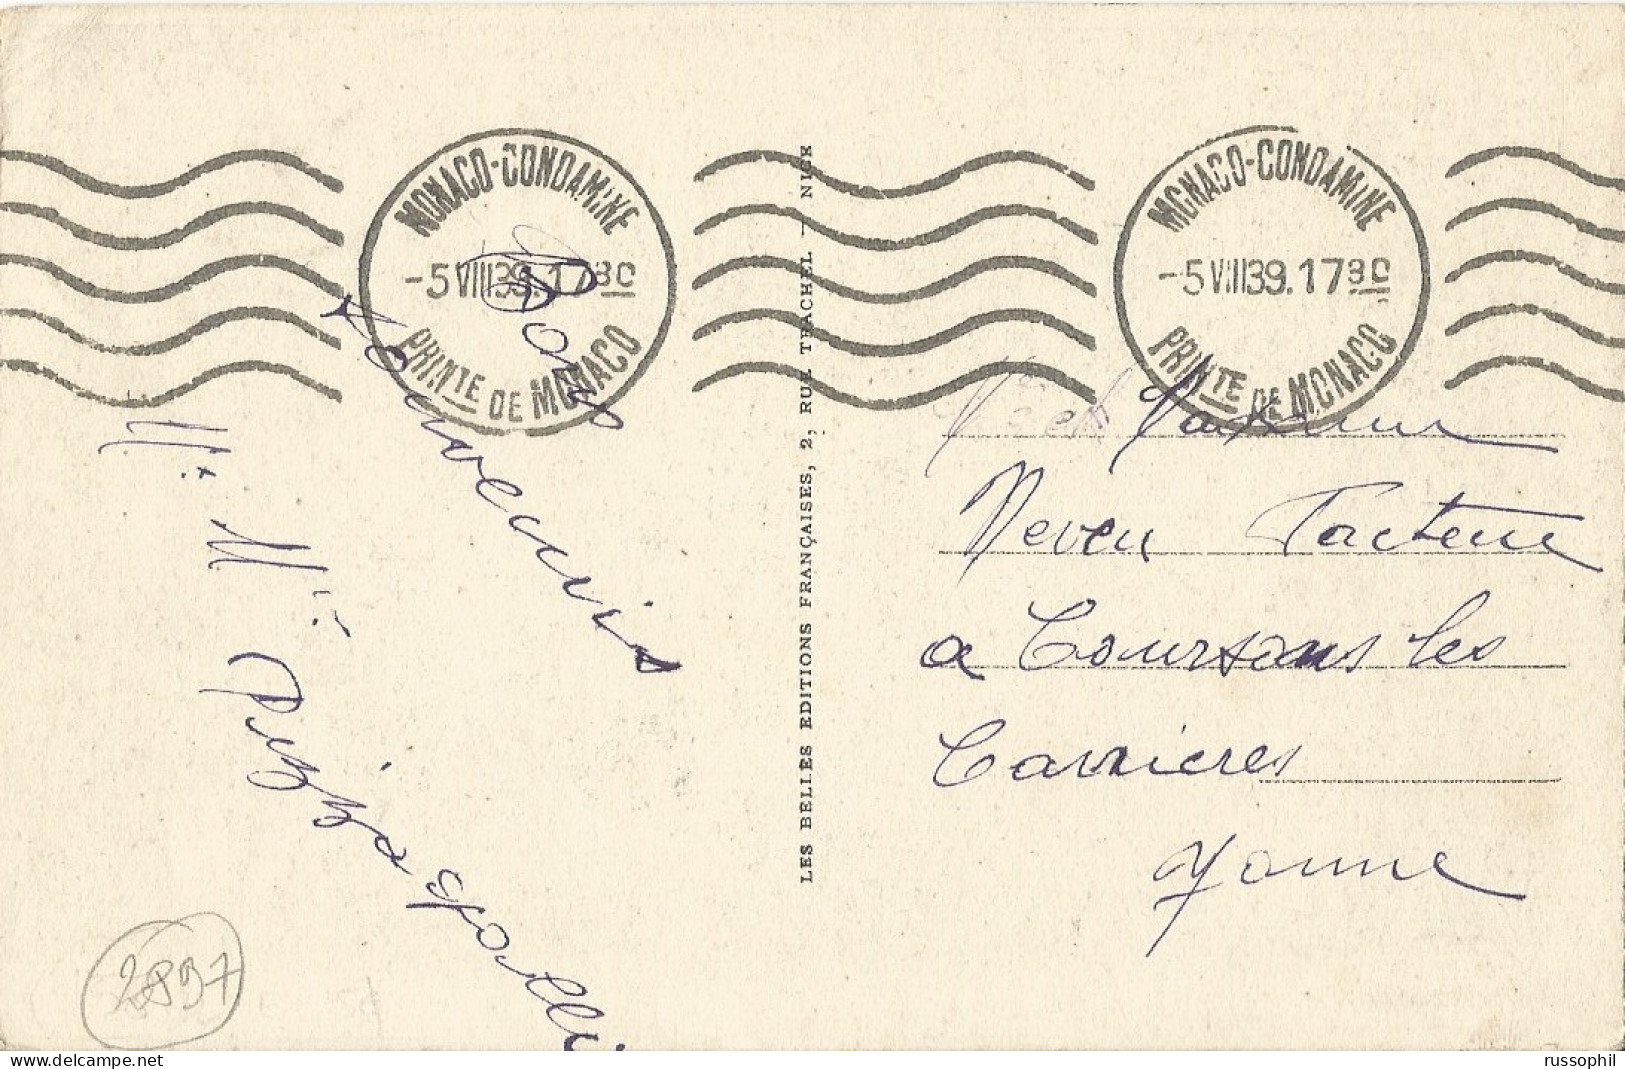 MONACO-CONDAMINE
-5 VIII 39. 17 30
PRINTE DE MONACO
MONACO-CONDAMINE
-5 VIII 39. 17 30
PRINTE DE MONACO
Bons
souvenirs
Mr Mme
LES BELLES EDITIONS FRANÇAISES, 2, RUE TRACHEL - NICE
Neveu Facteur
a Coursons les
Carrieres
Yonne
2897
www.delcampe.net
russophil